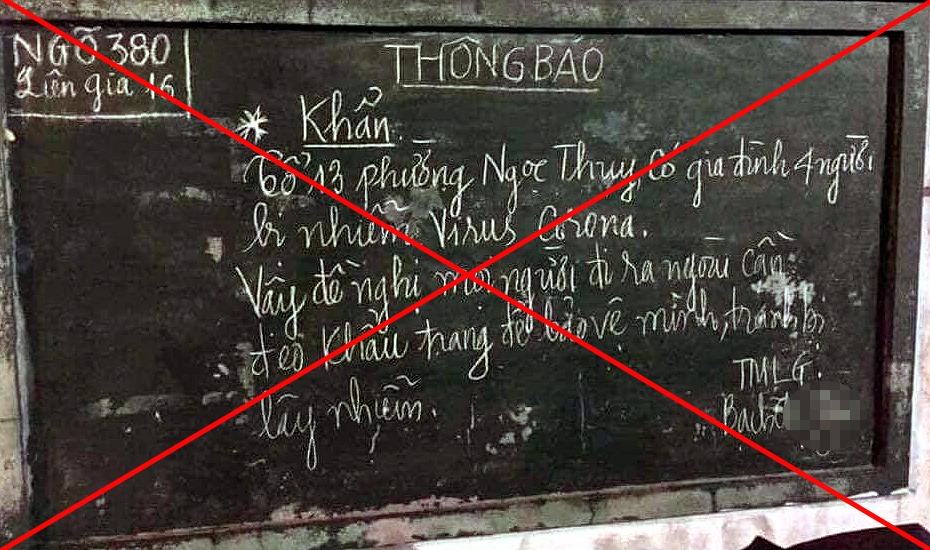 NGÕ 380
Liên gia 16
THÔNG BÁO
* Khẩn.
Tổ 13 phường Ngọc Thụy, Có gia đình 4 người
bị nhiễm Virus Corona.
Vậy đề nghị mọi người đi ra ngoài cần
đeo khẩu trang để bảo vệ mình, tránh bị
lây nhiễm.
TMLG.